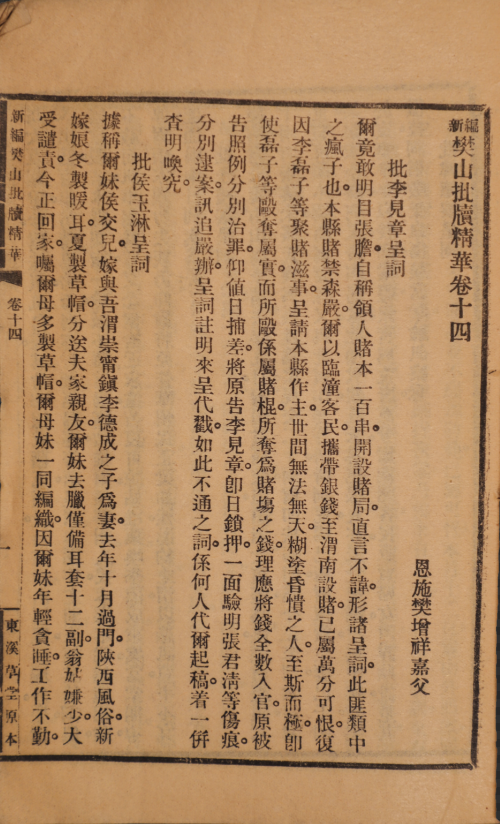 新編樊山批牘精華卷十四
恩施樊增祥嘉父
批李見章呈詞
爾竟敢明目張膽自稱領人賭本一百串開設賭局直言不諱形諸呈詞此匪類中
之瘋子也本縣賭禁森嚴爾以臨潼客民攜帶銀錢至渭南設賭已屬萬分可恨復
因李磊子等聚賭滋事呈請本縣作主世間無法無天糊塗昏憒之人至斯而極卽
使磊子等毆奪屬實而所毆係屬賭棍所奪爲賭塲之錢理應將錢全數入官原被
告照例分別治罪仰値日捕差將原告李見章卽日鎖押一面驗明張君淸等傷痕
分別逮案訊追嚴辦呈詞註明來呈代戳如此不通之詞係何人代爾起稿着一併
査明喚究
批侯玉淋呈詞
據稱爾妹侯交兒嫁與吾渭崇甯鎭李德成之子爲妻去年十月過門陜西風俗新
嫁娘冬製暖耳夏製草帽分送夫家親友爾妹去臘僅備耳套十二副翁姑嫌少大
受譴責今正回家囑爾母多製草帽爾母妹一同編織因爾妹年輕貪睡工作不勤
新編樊山批牘精華
卷十四
一
東溪草堂原本